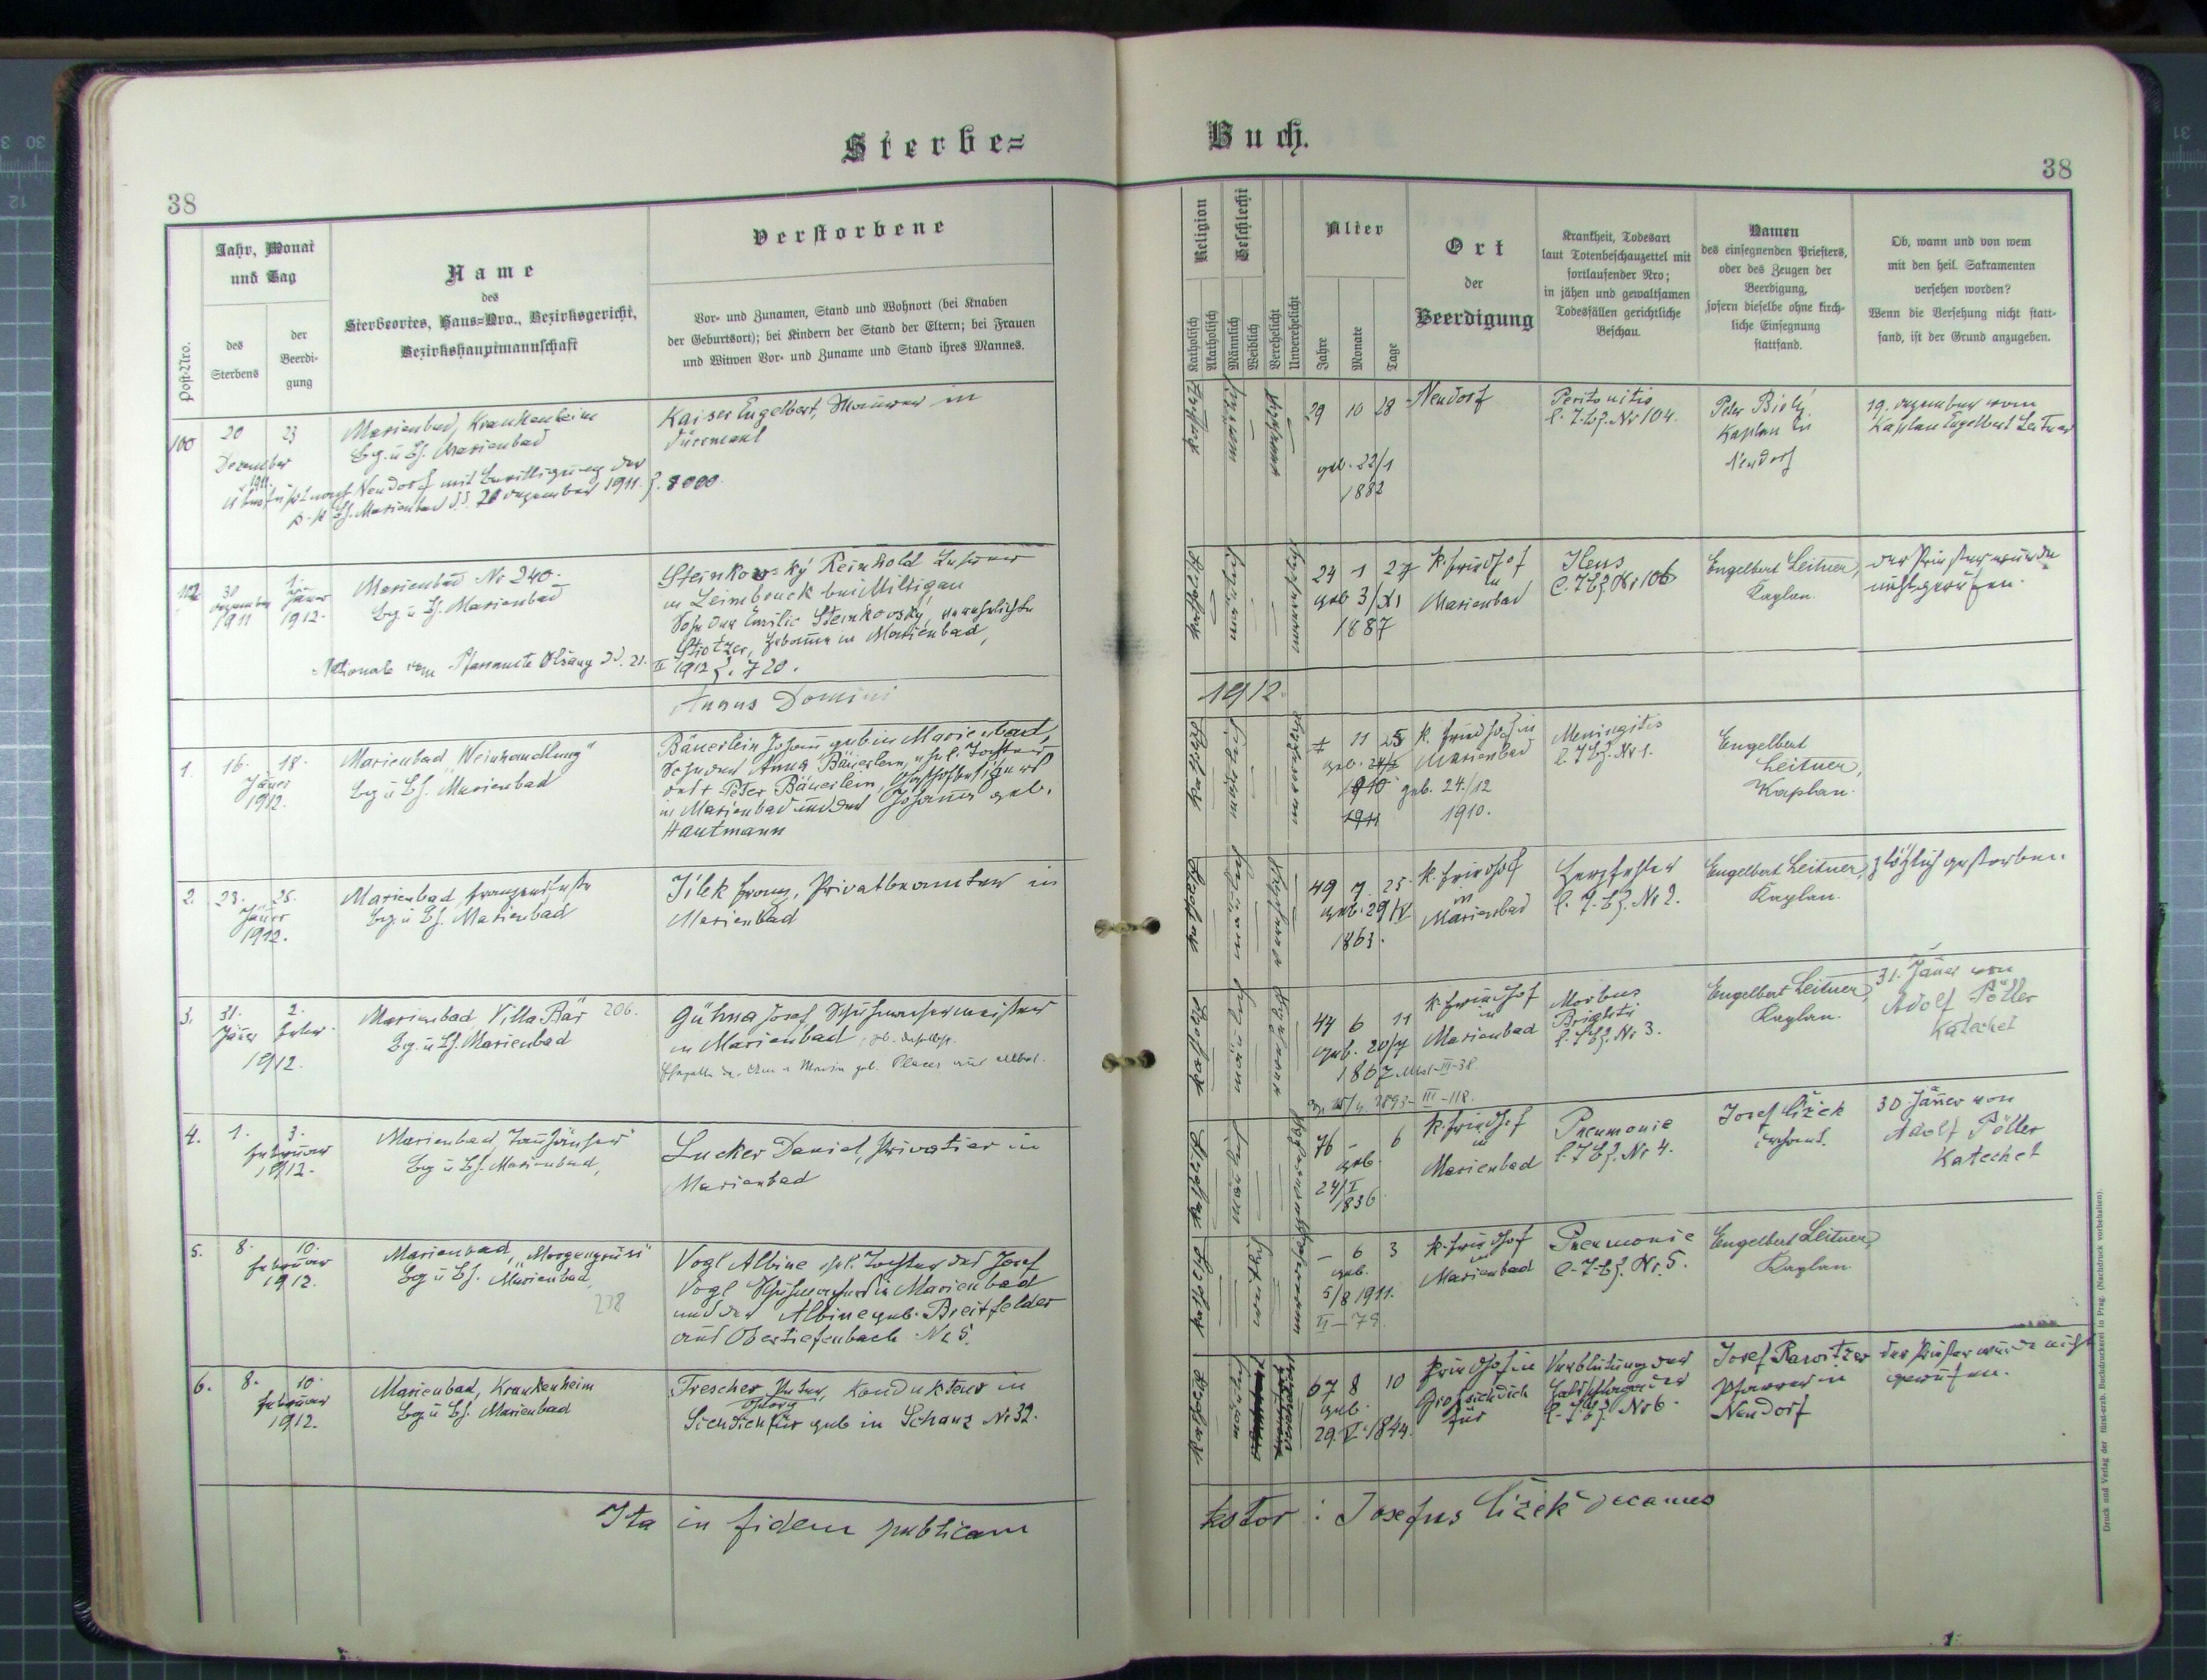 Sterbe=
Buch.
38
38
Jahr, Monat
und Tag
Post-Nro.
des
Sterbens
der
Beerdi-
gung
Name
des
Sterbeortes, Haus=Nro., Bezirksgericht,
Bezirkshauptmannschaft
Verstorbene
Vor- und Zunamen, Stand und Wohnort (bei Knaben
der Geburtsort); bei Kindern der Stand der Eltern; bei Frauen
und Witwen Vor- und Zuname und Stand ihres Mannes.
Religion
Katholisch
Akatholisch
Geschlecht
Männlich
Weiblich
Verehelicht
Unverehelicht
Alter
Jahre
Monate
Tage
Ort
der
Beerdigung
Krankheit, Todesart
laut Totenbeschauzettel mit
fortlaufender Nro;
in jähen und gewaltsamen
Todesfällen gerichtliche
Beschau.
Namen
des einsegnenden Priesters,
oder des Zeugen der
Beerdigung,
sofern dieselbe ohne kirch-
liche Einsegnung
stattfand.
Ob, wann und von wem
mit den heil. Sakramenten
versehen worden?
Wenn die Versehung nicht statt-
fand, ist der Grund anzugeben.
100
20 23
Dezember
1911.
Marienbad, Krankenheim
Bzg. u Bh. Marienbad
nach Neudorf mit Bewilligung der
Bh. Marienbad dd. 21 Dezember 1911 Z. 8000.
Kaiser Engelbert, Maurer in
Dürrmaul
katholisch
männlich
29 10 28
geb. 23/1
1882
Neudorf
Peritonitis
l. T.bz. Nr 104.
Peter Biely
Kaplan in
Neudorf
19. Dezember vom
Kaplan Engelbert Leitner
102
31
Dezember
1911
2.
Jänner
1912.
Marienbad Nr 240.
Bzg. u Bh. Marienbad
Steinkovský Reinhold
in Leimbruck bei Miltigau
Sohn der Emilie Steinkovský, verehelichte
Stotzer, geboren in Marienbad,
vom Pfarramte dd. 21.
II 1912 Z. 720.
katholisch
männlich
24 1 27
geb 3/XI
1887
k. Friedhof
in
Marienbad
Ileus
l. T.bz. Nr 106
Engelbert Leitner,
Kaplan.
der Priester wurde
nicht gerufen.
Annus Domini
1912
1.
16. 18.
Jänner
1912.
Marienbad „Weinhandlung"
Bzg u Bh. Marienbad
Bäuerlein Johann geb in Marienbad,
Sohn der Anna Bäuerlein, ehel. Tochter
des † Peter Bäuerlein,
in Marienbad und der Johanna geb.
Hautmann
katholisch
männlich
1 11 25
1910
1911
k. Friedhof in
Marienbad
geb. 24./12
1910.
Meningitis
l. T.bz. Nr 1.
Engelbert
Leitner,
Kaplan.
2.
23. 25.
Jänner
1912.
Marienbad,
Bzg. u Bh. Marienbad
Jilek Franz, Privatbeamter in
Marienbad
katholisch
männlich
49 7. 25.
geb. 29/V
1863.
k. Friedhof
in
Marienbad
Herzfehler
l. T.bz. Nr 2.
Engelbert Leitner,
Kaplan.
plötzlich gestorben.
3.
31. 2.
Jänner Feber
1912.
Marienbad, Villa Bär 206.
Bzg. u Bh. Marienbad
Gühna Josef, Schuhmachermeister
in Marienbad
katholisch
männlich
44 6 11
geb. 20/7
1867
III-118.
k. Friedhof
in
Marienbad
Morbus
Brighti
l. T.bz. Nr 3.
Engelbert Leitner,
Kaplan.
31. Jänner von
Adolf Pöller
Katechet
4.
1. 3.
Februar
1912.
Marienbad, „Tannhäuser"
Bzg u Bh. Marienbad,
Lucker Daniel, Privatier in
Marienbad
katholisch
männlich
76 - 6
geb.
24/I
1836.
k. Friedhof
in
Marienbad
Pneumonie
l. T.bz. Nr 4.
Josef Čížek
Dechant.
30. Jänner von
Adolf Pöller
Katechet
5.
8. 10.
Februar
1912.
Marienbad, „Morgengruss"
Bzg u Bh. Marienbad,
238
Vogl Albine ehel. Tochter des Josef
Vogl Schuhmacher in Marienbad
und der Albine geb. Breitfelder
aus Obertiefenbach Nr 5.
katholisch
weiblich
- 6 3
geb.
5/8 1911.
II-79
k. Friedhof
in
Marienbad
Pneumonie
l. T.bz. Nr. 5.
Engelbert Leitner,
Kaplan.
6.
8. 10.
Februar
1912.
Marienbad, Krankenheim
Bzg u Bh. Marienbad
Frescher Kondukteur in
Georg
Sichdichfür geb in Schanz Nr 32.
katholisch
männlich
67 8 10
geb.
29. V. 1844.
Friedhof in
Großsichdich
für
Verblutung der
Halsschlagader
l. T.bz. Nr 6.
Josef Rawitzer
Pfarrer in
Neudorf
der Priester wurde nicht
gerufen.
Ita in fidem publicam
testor: Josephus Čížek decanus
Druck und Verlag der fürst-erzb. Buchdruckerei in Prag. (Nachdruck vorbehalten).